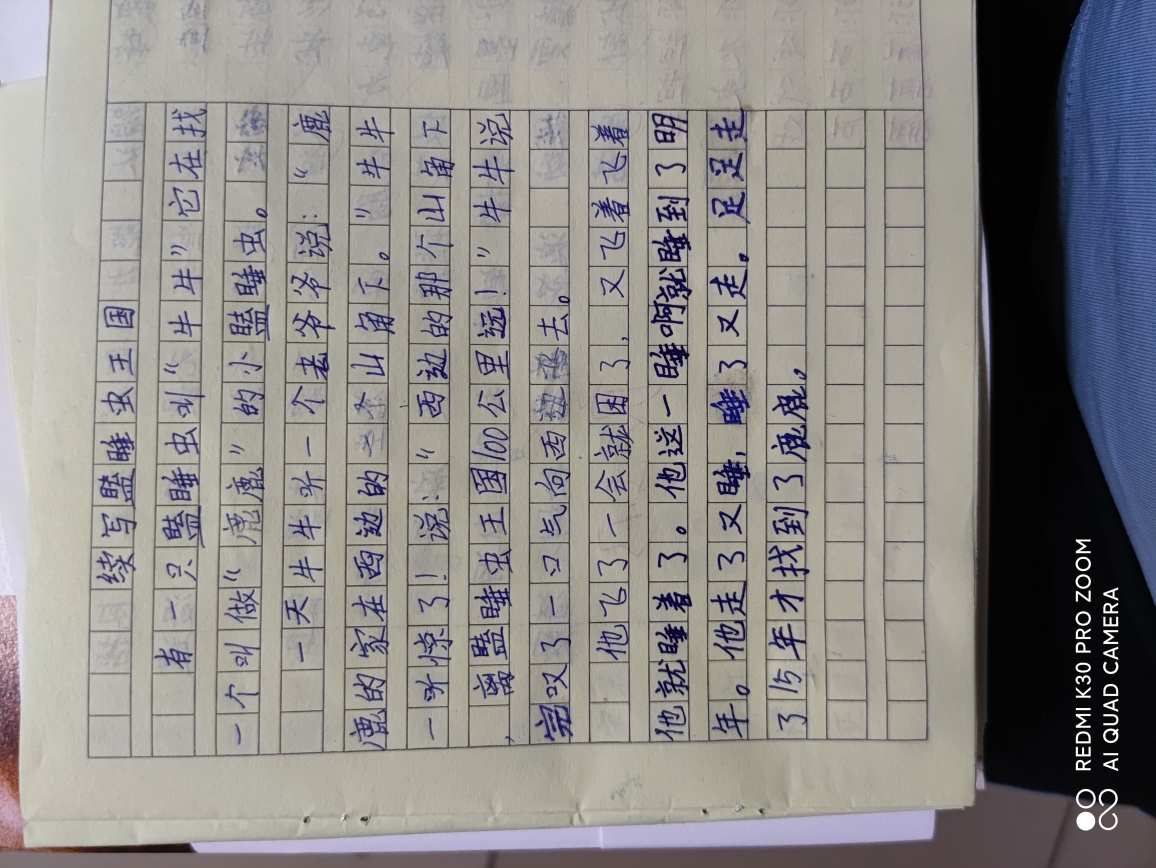 续写瞌睡虫王国
有一只瞌睡虫叫“牛牛”它在找
一个叫做“鹿鹿”的小瞌睡虫。
一天牛牛听一个老爷爷说：“鹿
鹿的家在西边的一个山角下。”牛牛
一听惊了！说：“西边的那个山角下
离瞌睡虫王国100公里远！”牛牛说
完叹了一口气向西边飞去。
他飞了一会就困了，又飞着飞着
他就睡着了。他这一睡啊就睡到了明
年。他走了又睡，睡了又走。足足走
了15年才找到了鹿鹿。
REDMI K30 PRO ZOOM
AI QUAD CAMERA